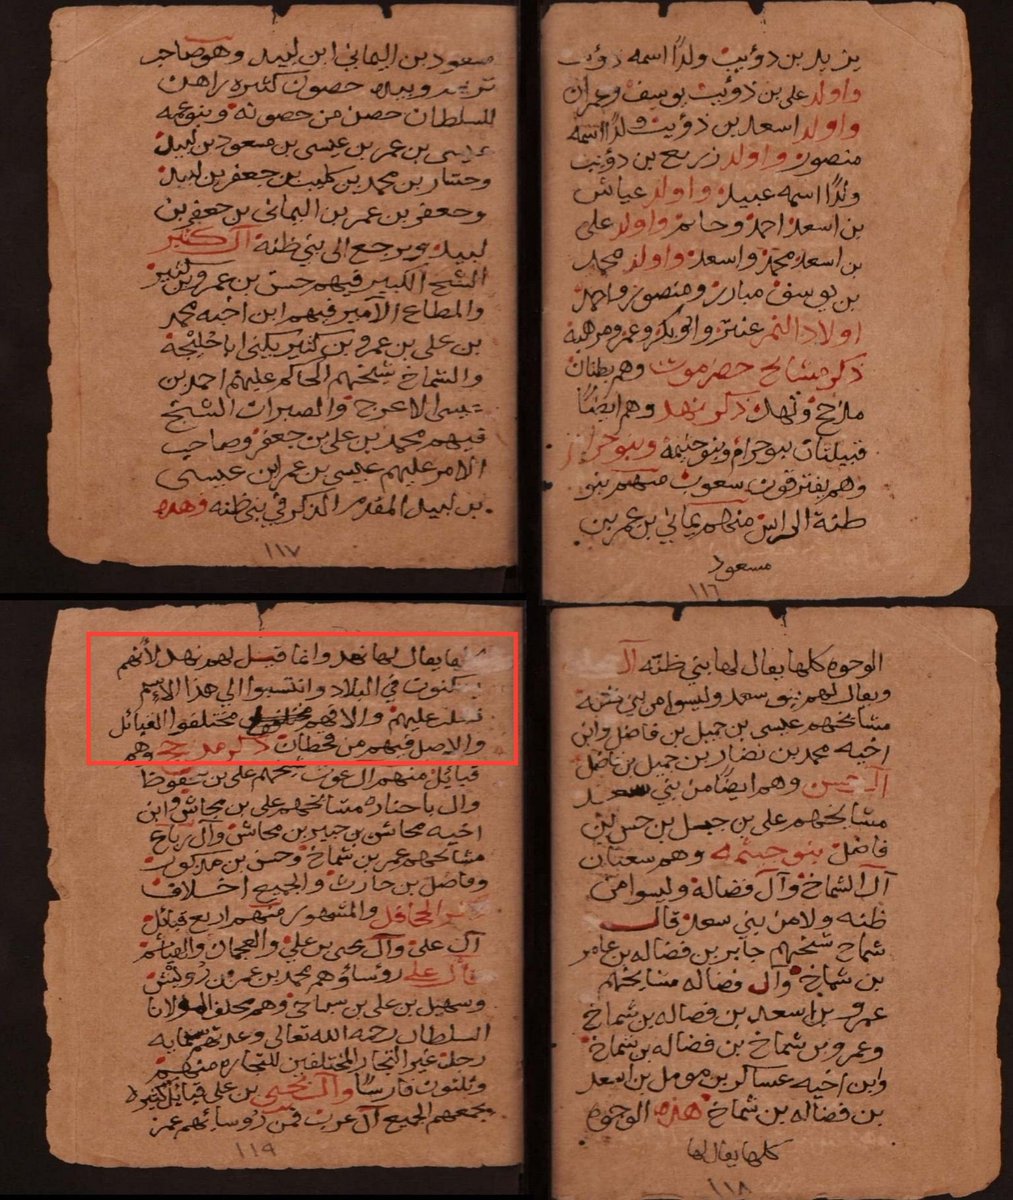 يزيد بن دؤيب ولدًا اسمه دؤيب
واولد علي بن دؤيب يوسف وعمران
واولد اسعد بن دؤيب ولدًا اسمه
منصور واولد زريع بن دؤيب
ولدًا اسمه عبيد واولد عياش
بن اسعد احمد وحاتم واولد علي
بن اسعد محمد واسعد واولد محمد
بن يوسف مبارز ومنصور واحمد
اولاد النمر عنتر وابوبكر وعمر ومرهبة
ذكر مشايخ حضرموت وهم بطنان
مذحج ونهد ذكر نهد وهم ايضًا
قبيلتان بنو حرام وبنو خيثمه وبنو حرام
وهم يفترقون سعوب منهم بنو
ظنة الراس منهم يماني بن عمر بن
مسعود
١١٦
مسعود بن اليماني ابن لبيد وهو صاحب
تريم وبيده حصون كثيره راهن
للسلطان حصن من حصونه وبنو عمه
عيسى بن عمر بن عيسى بن مسعود بن لبيد
بن محمد بن كليب بن جعفر بن لبيد
وجعفر بن عمر بن اليماني بن جعفر بن
لبيد ويرجع الى بني ظنه آل كثير
الشيخ الكبير فيهم حسن بن عمرو بن كثير
والمطاع الآمير فيهم ابن اخيه محمد
بن علي بن عمرو بن كثير يكنى ابا خليجة
والشماخ شيخهم الحاكم عليهم احمد بن
عيسى الاعرج والصبرات الشيخ
فيهم محمد بن علي بن جعفر وصاحب
الامر عليهم عيسى بن عمر ابن عيسى
بن لبيد المقدم الذكر في بني ظنه وهذه
١١٧
الوجوه كلها يقال لها بني ظنه آل
ويقال لهم بنو سعد وليسوا من بني
مشايخهم عيسى بن جميل بن فاضل وابن
اخيه محمد بن نضار بن جميل بن فاضل
آل وهم ايضًا من بني سعد
مشايخهم علي بن بن حسن بن
فاضل بنو خيثمه وهم سعبان
آل الشماخ وآل فضاله وليسوا من
ظنه ولا من بني سعد قال
شماخ شيخهم جابر بن فضاله بن عامر
بن شماخ وآل فضاله مشايخهم
عمرو بن اسعد بن فضاله بن شماخ
وعمرو بن شماخ بن فضاله بن شماخ
وابن اخيه عساكر بن مومل بن اسعد
بن فضاله بن شماخ هذه الوجوه
كلها يقال لها
١١٨
كلها يقال لها نهد وانما قيل لهم نهد لأنهم
يسكنون في البلاد وانتسبوا الي هذا الاسم
عليهم والا فهم مختلفوا القبائل
والاصل فيهم من قحطان ذكر مذحج وهم
قبائل منهم آل عون شيخهم علي بن
وآل باحناره مشايخهم علي بن محاشن وابن
اخيه محاشن بن جبير بن محاشن وآل رباع
مشايخهم عمر بن شماخ وحسن بن مذكور
وفاضل بن حارث والجميع اخلاف
والمشهور منهم اربع قبائل
آل علي وآل يحيى بن علي والعجمان
فآل علي رؤساؤهم محمد بن عمر بن رويش
وسهيل بن علي بن سماخ وهم مخلف مولانا
السلطان رحمه الله تعالى وعدتهم مايه
رجل غير التجار المختلفين للتجاره منهم
وثلثون فارسًا وآل يحيى بن علي قبائل كثيره
يجمعهم الجميع آل عرب فمن رؤسائهم عمر
١١٩